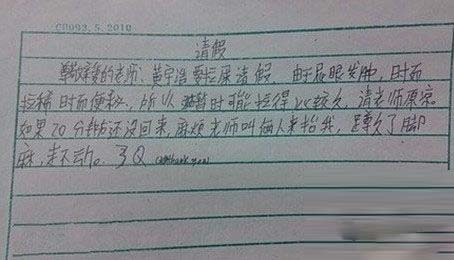 C0093.5.2010
请假
尊敬亲爱的老师:黄宇温要拉屎请假 由于屁眼发肿,时而
拉稀时而便秘,所以 时可能拉得比较久 请老师原谅
如果20分钟还没回来,麻烦老师叫俩人来抬我,蹲久了脚
麻,走不动。3Q thank you